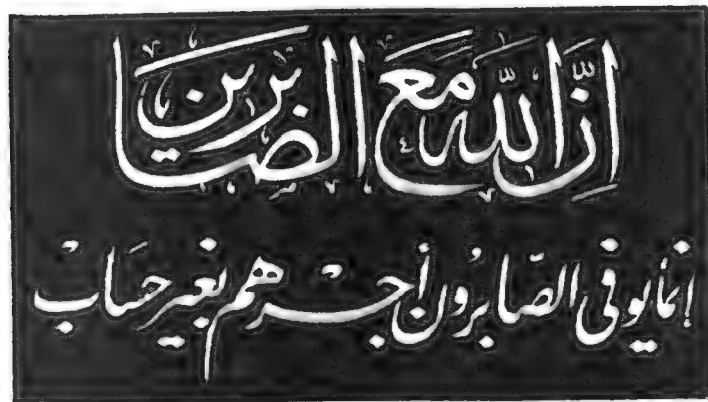 إنَّ اللّٰه مع الصابرين
إنما يوفى الصّابرُون أجرهم بغير حسَاب